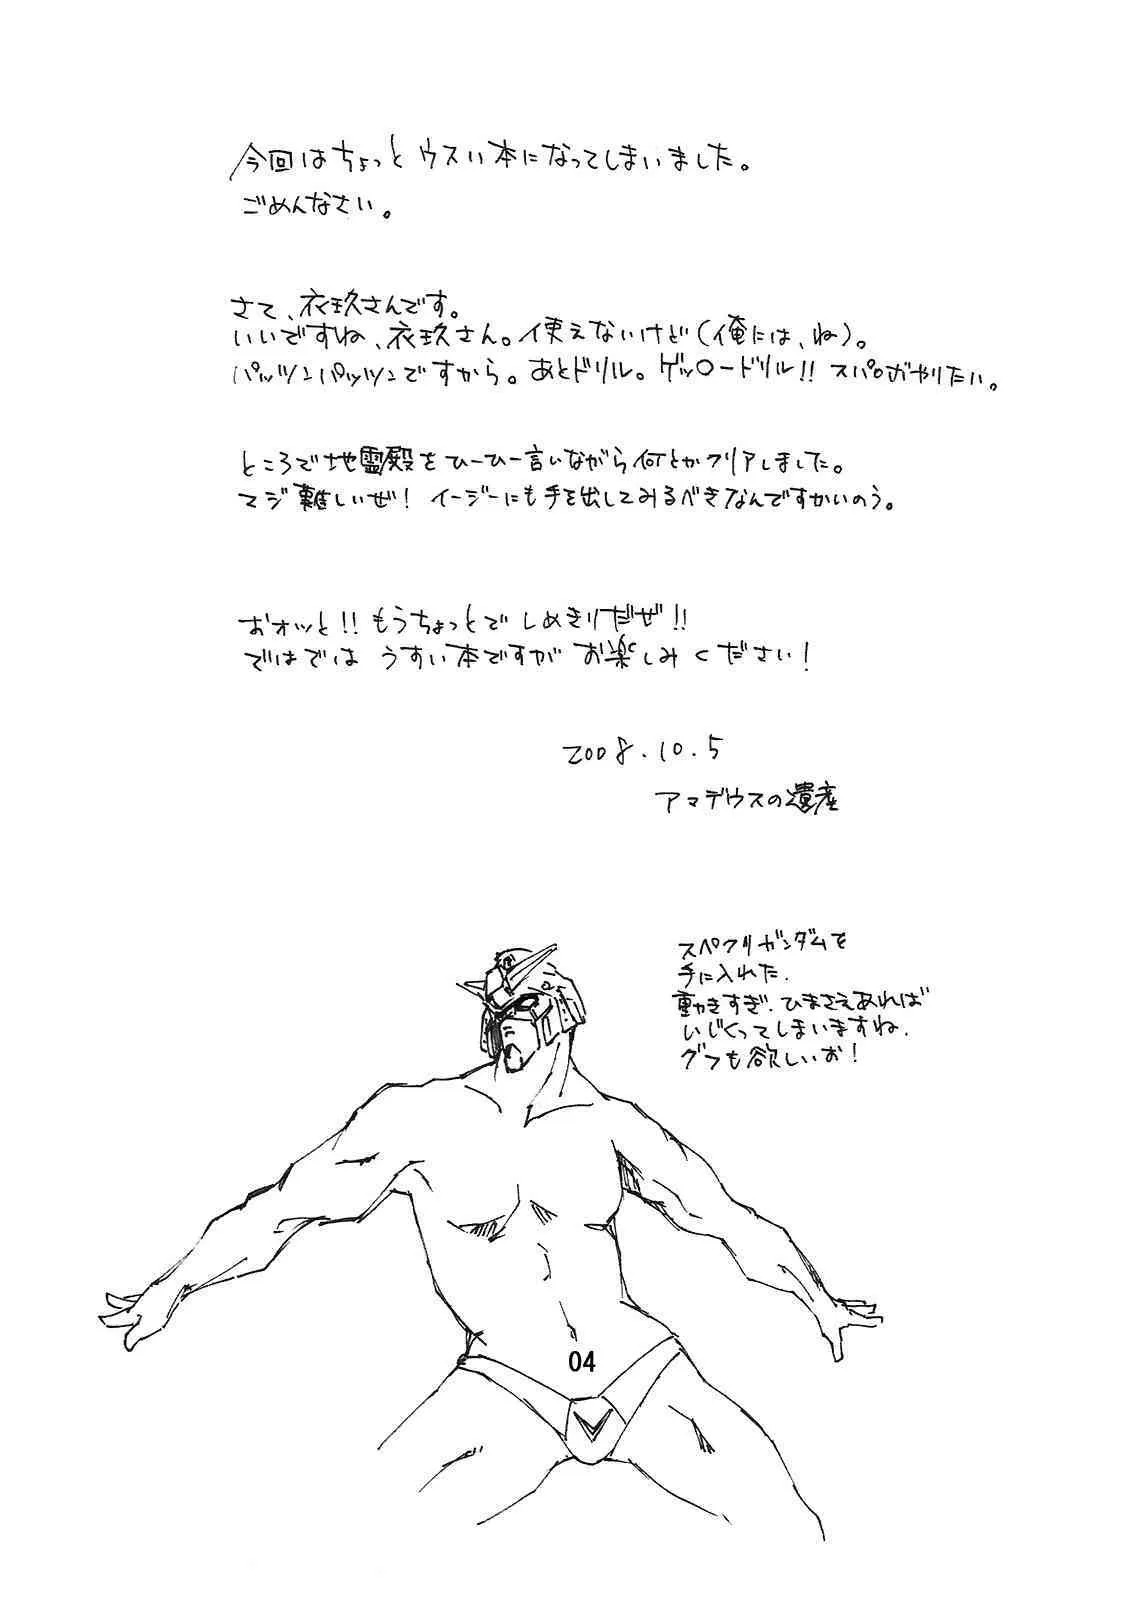 今回はちょっとウスい本になってしまいました。
ごめんなさい。
さて、衣玖さんです。
いいですね、衣玖さん。使えないけど(俺には、ね)。
パッツンパッツンですから。あとドリル。ゲッ〇ードリル!!スパロボやりたい。
ところで地霊殿をひーひー言いながら何とかクリアしました。
マジ難しいぜ!イージーにも手を出してみるべきなんですかいのう。
おオッと!!もうちょっとでしめきりだぜ!!
ではでは うすい本ですが お楽しみください!
2008.10.5
アマデウスの遺産
スペクリガンダムを
手に入れた.
動きすぎ.ひまさえあれば
いじくってしまいますね.
グフも欲しいお!
04